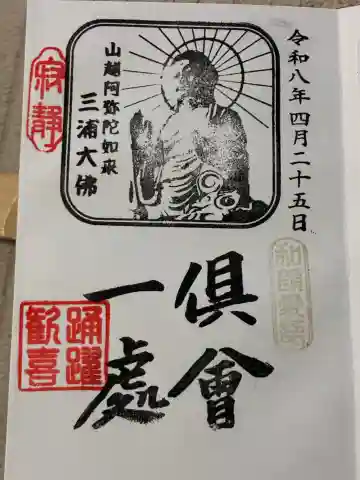 令和八年四月二十五日
山越阿弥陀如来
三浦大佛
寂静
倶會
一處
踊躍
歓喜
和顔愛語